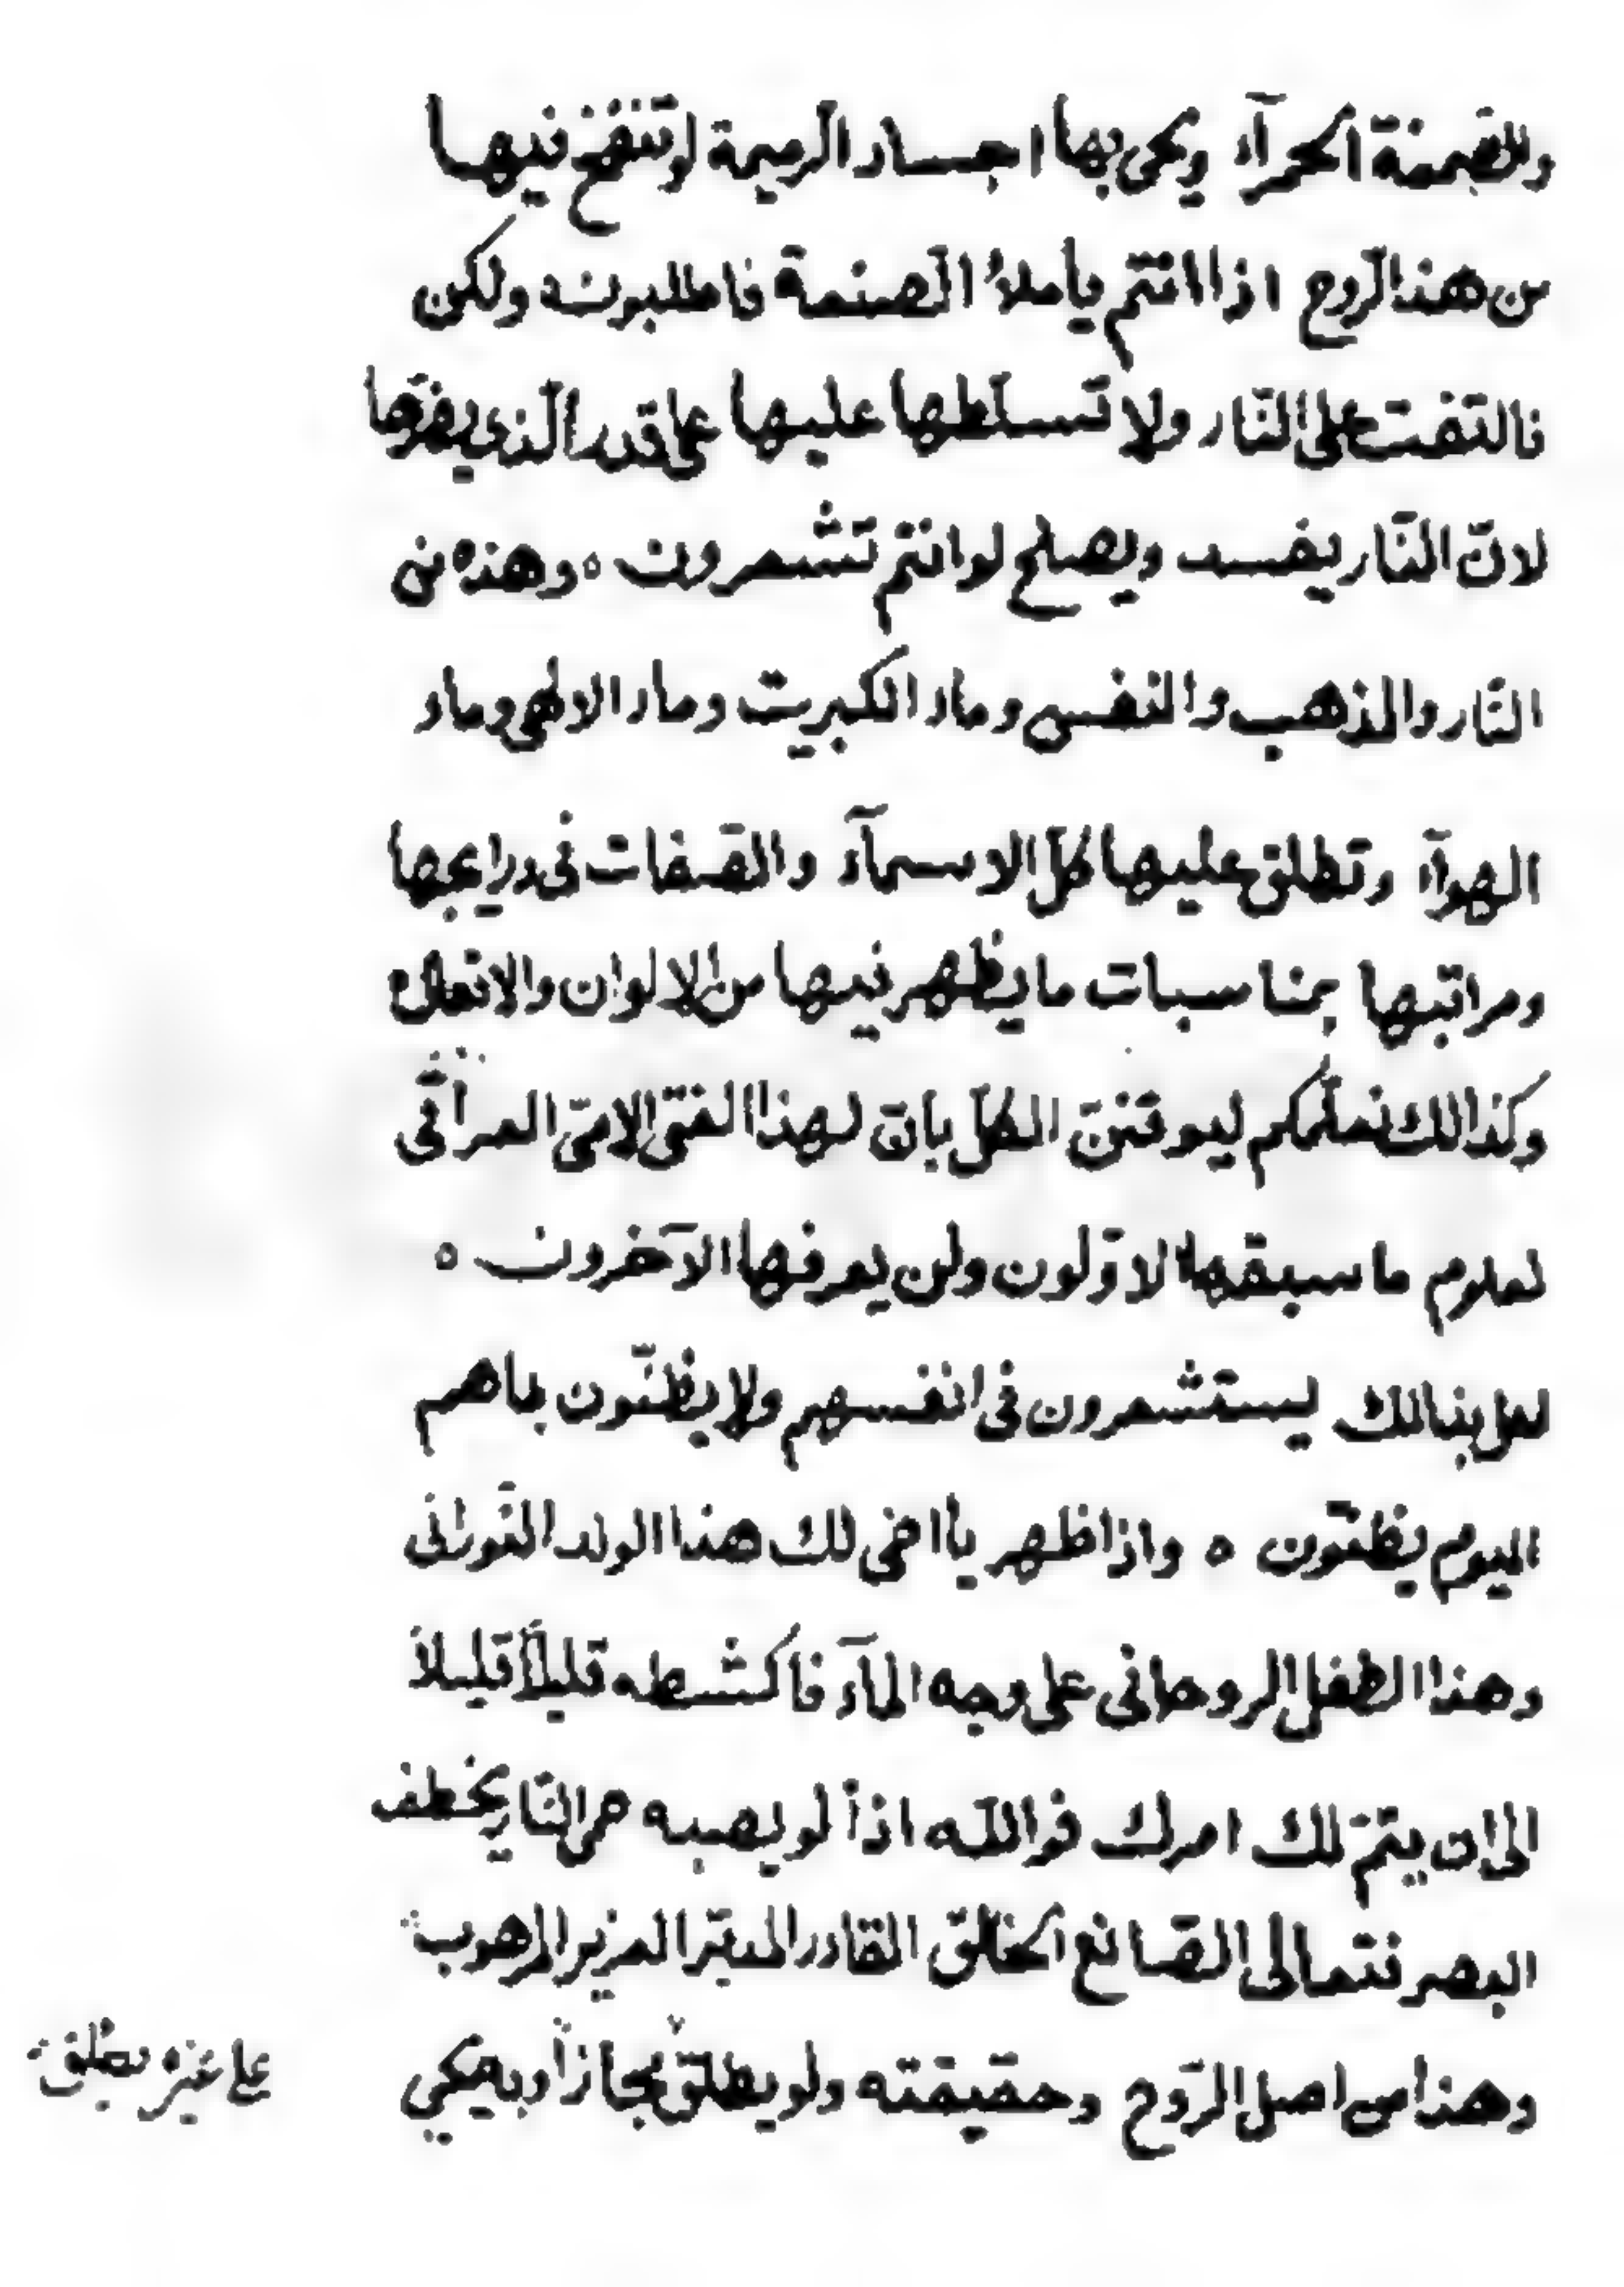 والصمغة الحمرآء ويحى بها اجساد الرميمة لو تنفخ فيها
من هذا لرّوح اذا انتم يا ملأ الصنعة فاطلبون ولكن
فالتفت على النّار ولا تسلّطها عليها على قدر الّذى يفرّها
لانّ النّار يفسد ويصلح لو انتم تشعرون ٥ وهذه لهى
النّار والذهب والنفس وماء الكبريت وماء الالهى وماء
الهوآء وتطلق عليها كلّ الاسمآء والصّفات فى درايجها
ومراتبها بمناسبات ما يظهر فيها من الالوان والافعال ٥
وكذالك نعلّمكم ليوقننّ الكلّ بانّ لهذا الفتى الامّى العراقى
لعلوم ما سبقها الاوّلون ولن يعرفها الآخرون ٥
لعل بذالك يستشعرون فى انفسهم ولا يظنّون بما هم
اليوم يظنّون ٥ واذا ظهر يا اخى لك هذا الولد النّورانى
وهذا الطفل الروحانى على وجه المآء فاكشطه قليلاً قليلاً
الى ان يتمّ لك امرك فوالله اذاً لو يصبه حر النّار يخطف
البصر فتعالى الصّانع الخالق القادر المدبّر العزيز المرهوب
وهذا من اصل الرّوح وحقيقته ولو يطلق مجازاً وبحكى
على غيره يطلق